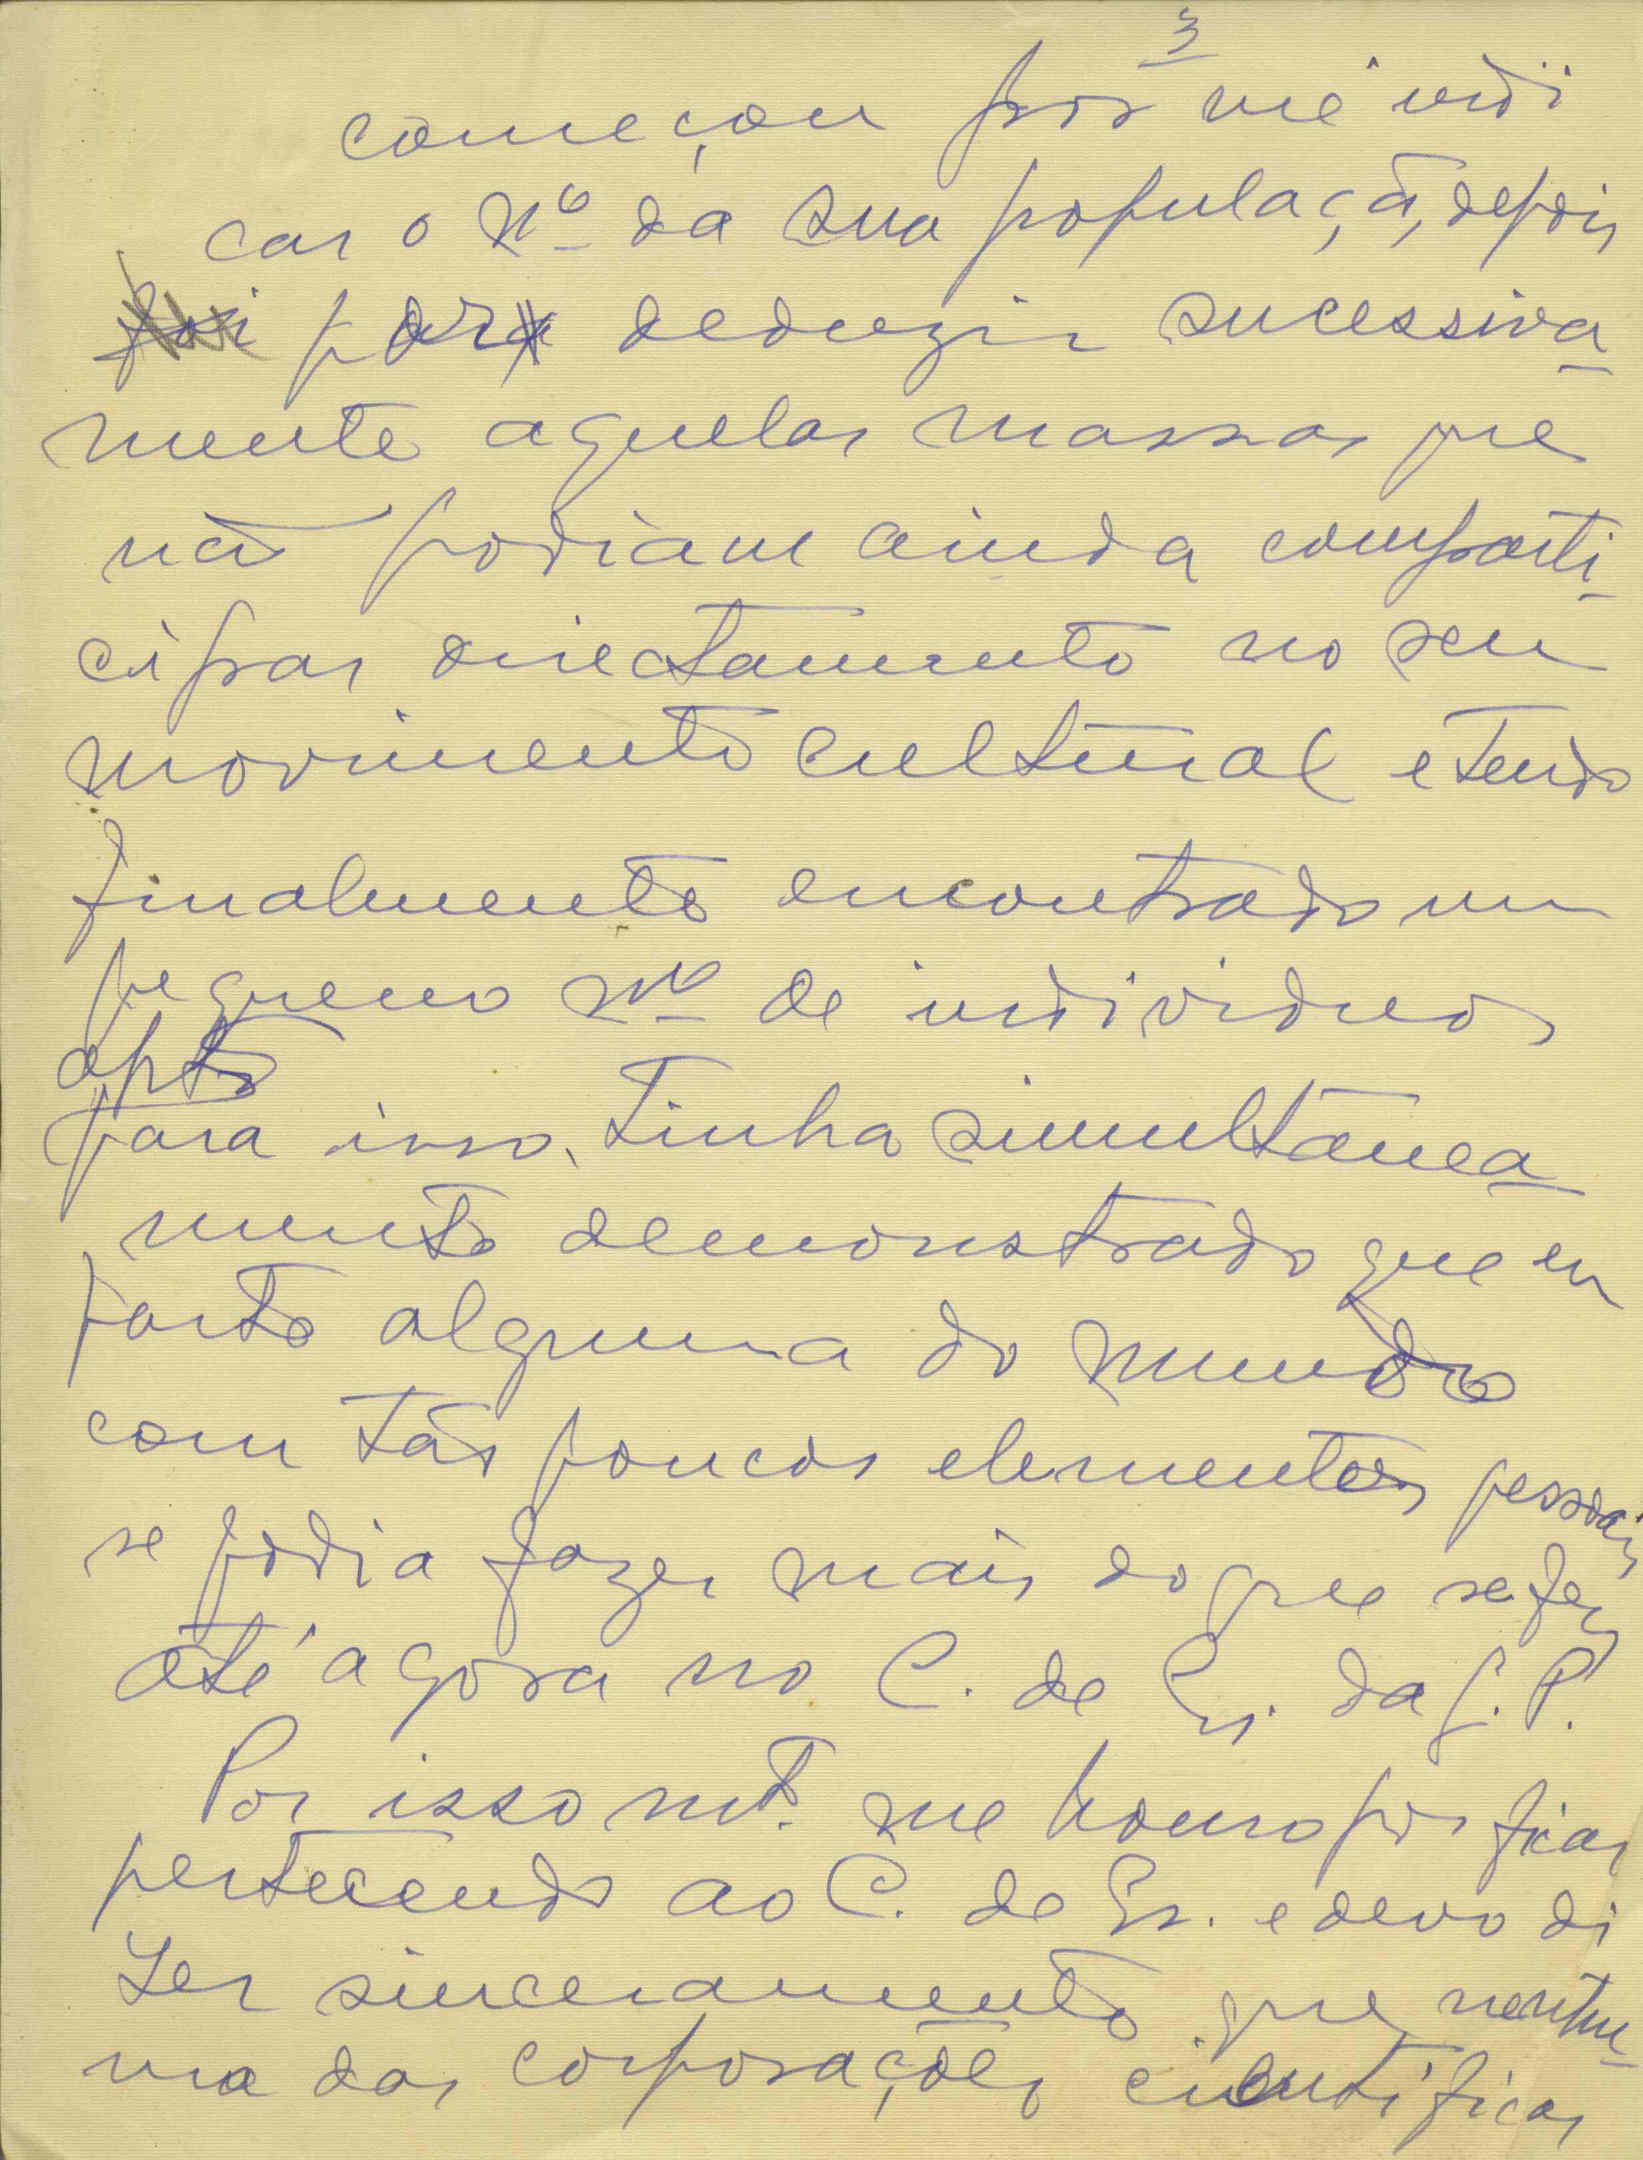 3
começou por me indi
car o Nº da sua população, depois
por deduzir sucessiva-
mente aquelas massas que
não podiam ainda comparti-
cipar directamente no seu
movimento cultural e tendo
finalmente encontrado um
pequeno nº de individuos
aptos
para isso. Tinha simultanea-
mente demonstrado que em
parte alguma do mundo
com tão poucos elementos pessoais
se podia fazer mais do que se fez
até agora no C. de Es. da G. P.
Por isso mtº. me honro por ficar
pertecendo ao C. de Es. e devo di
zer sinceramente que nenhu-
ma das corporações cientificas